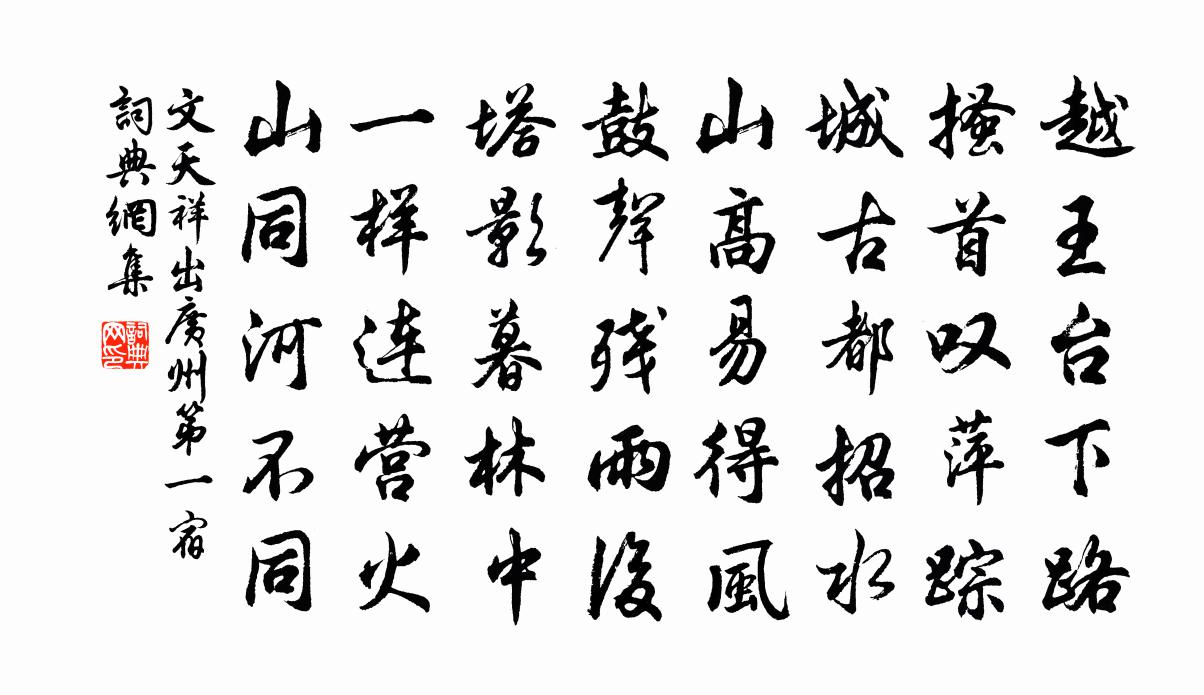 越王台下路
搔首叹萍踪
城古都招水
山高易得風
鼓聲残雨後
塔影暮林中
一样连营火
山同河不同
文天祥出廣州第一宿
詞典網集
詞典网印